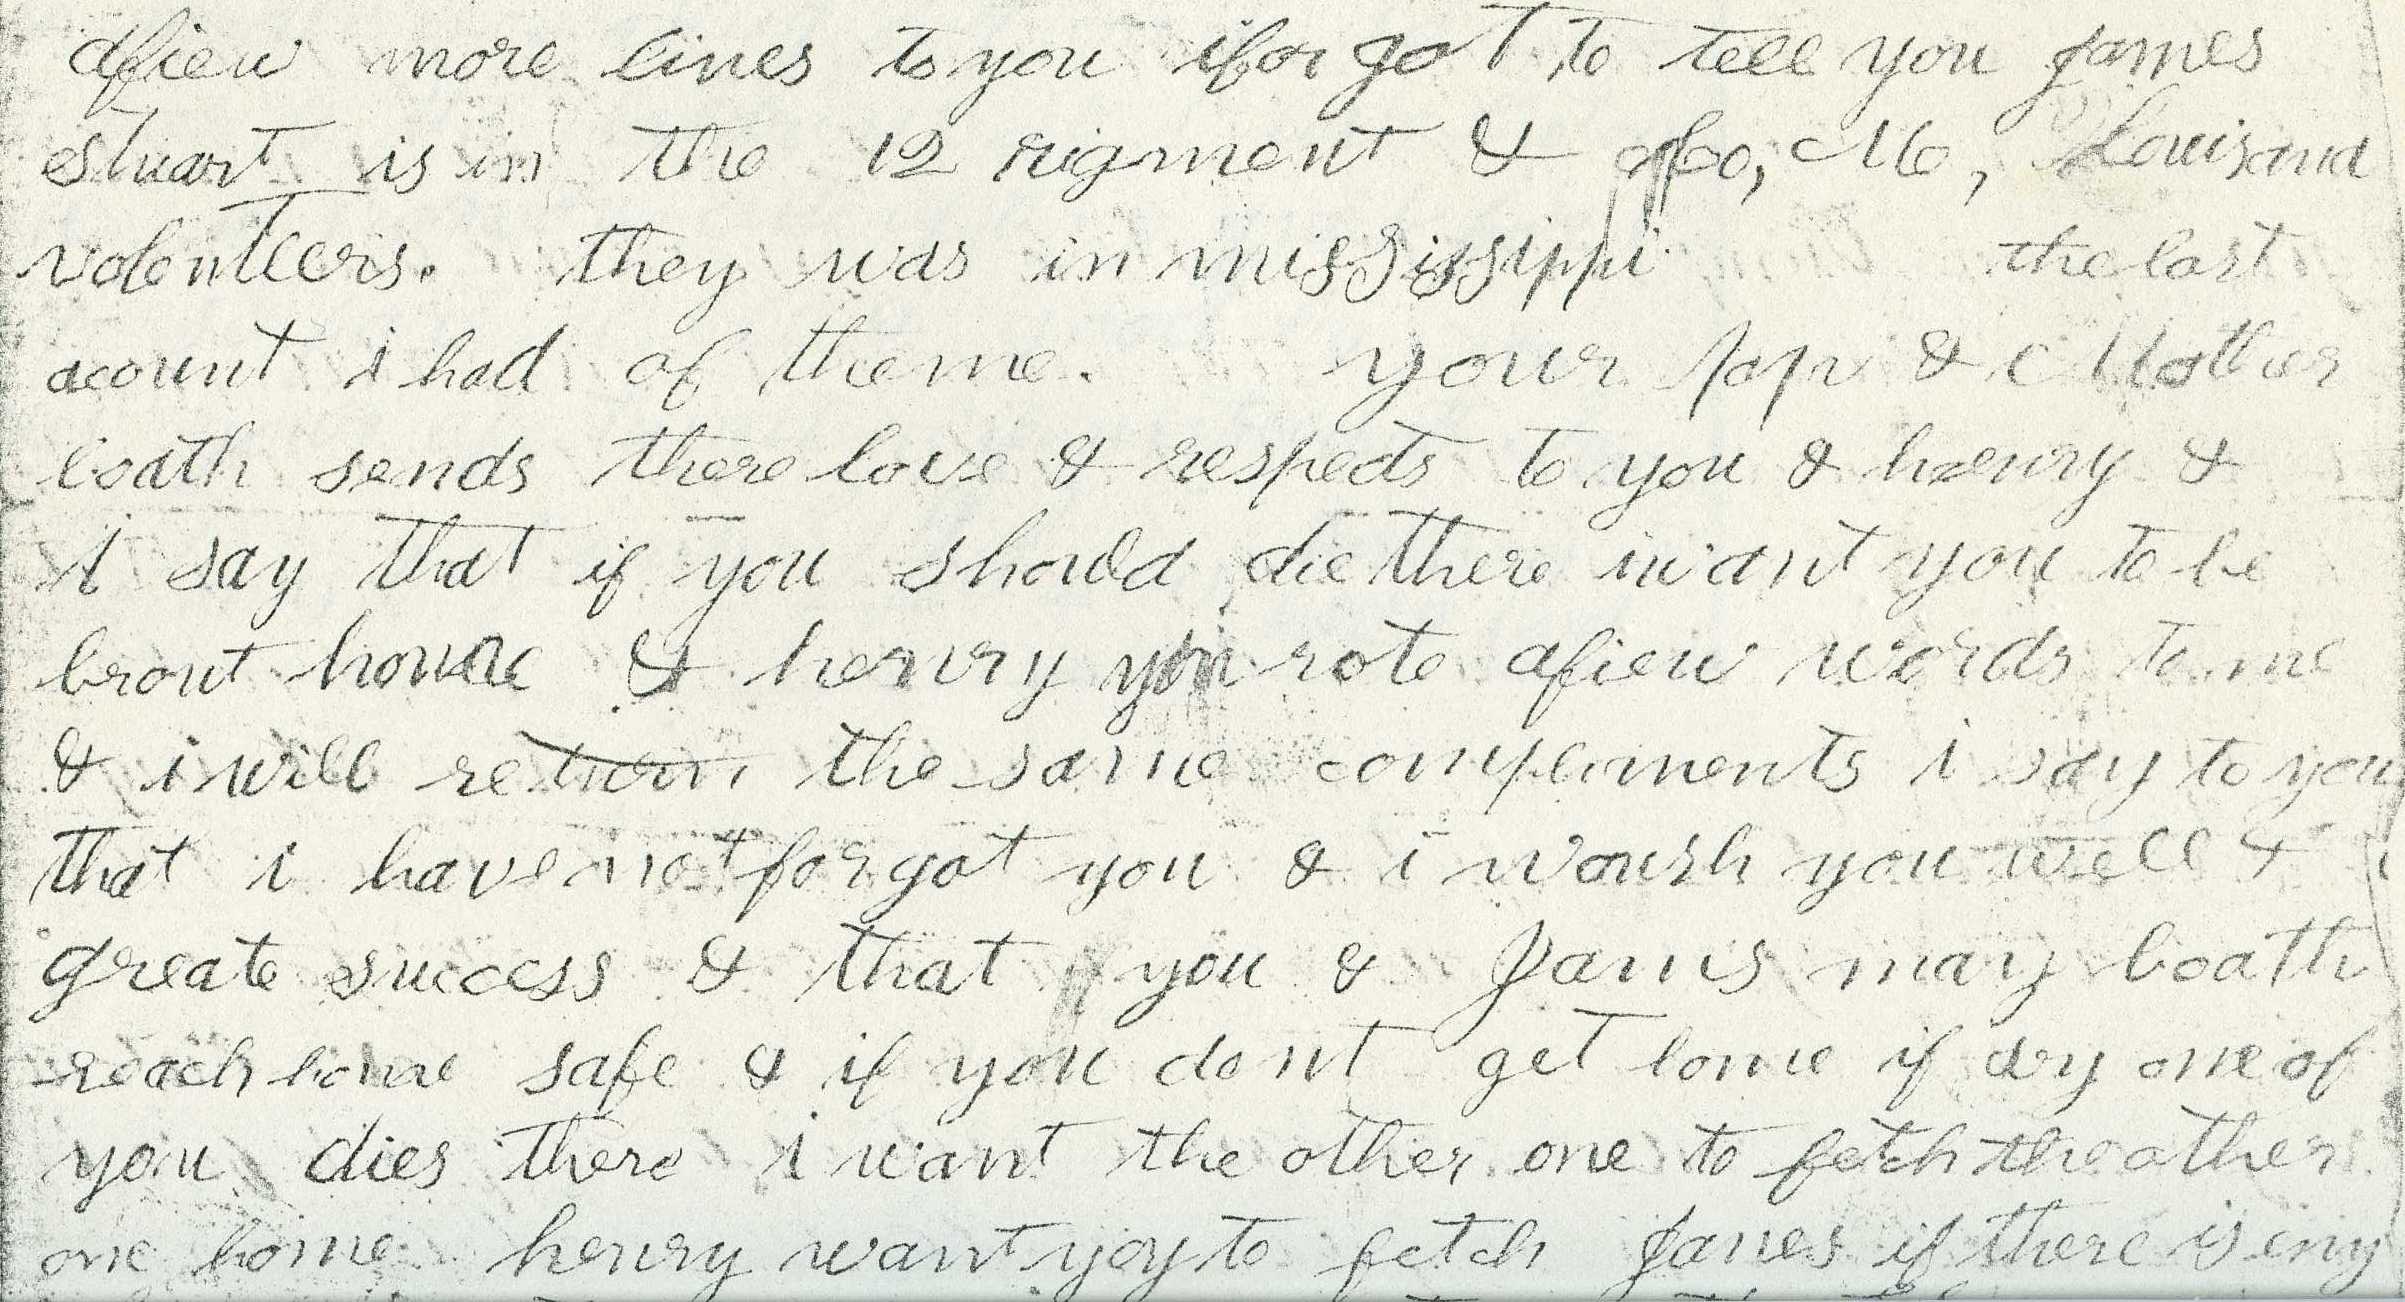 afiew more lines to you iforgot to tell you james
estuart is in the 12 rigment & of Co, M, Louisana
volentteers. they was in mississippi the last
acount i had of theme. your pap & Mother
boath sends there love & respects to you & henry &
i say that if you should die there iwant you to be
brout home & henry you rote afiew words to me
& i will return the same complements i say to you
that i have not forgot you & i woush you well &
greate success & that you & Jams may boath
reach home safe & if you dont get home if any one of
you dies there i want the other one to fetch the other
one home henry want yoy to fetch James if there is eny